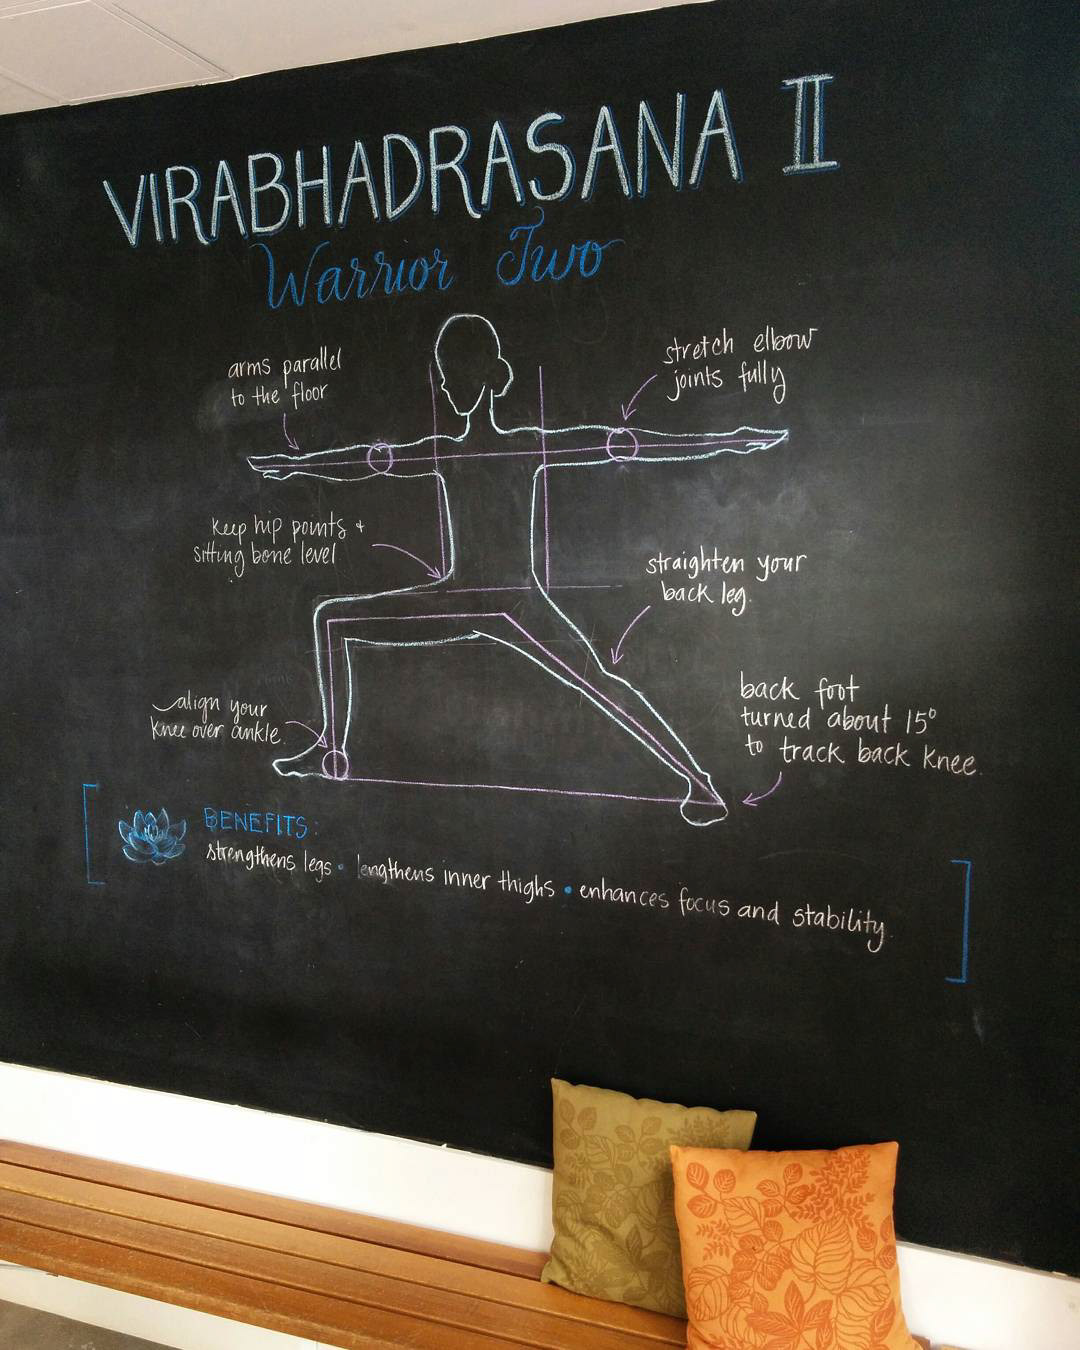 VIRABHADRASANA II
Warrior Two
arms parallel
to the floor
stretch elbow
joints fully
keep hip points +
sitting bone level
straighten your
back leg.
align your
knee over ankle.
back foot
turned about 15°
to track back knee.
BENEFITS:
strengthens legs • lengthens inner thighs • enhances focus and stability.